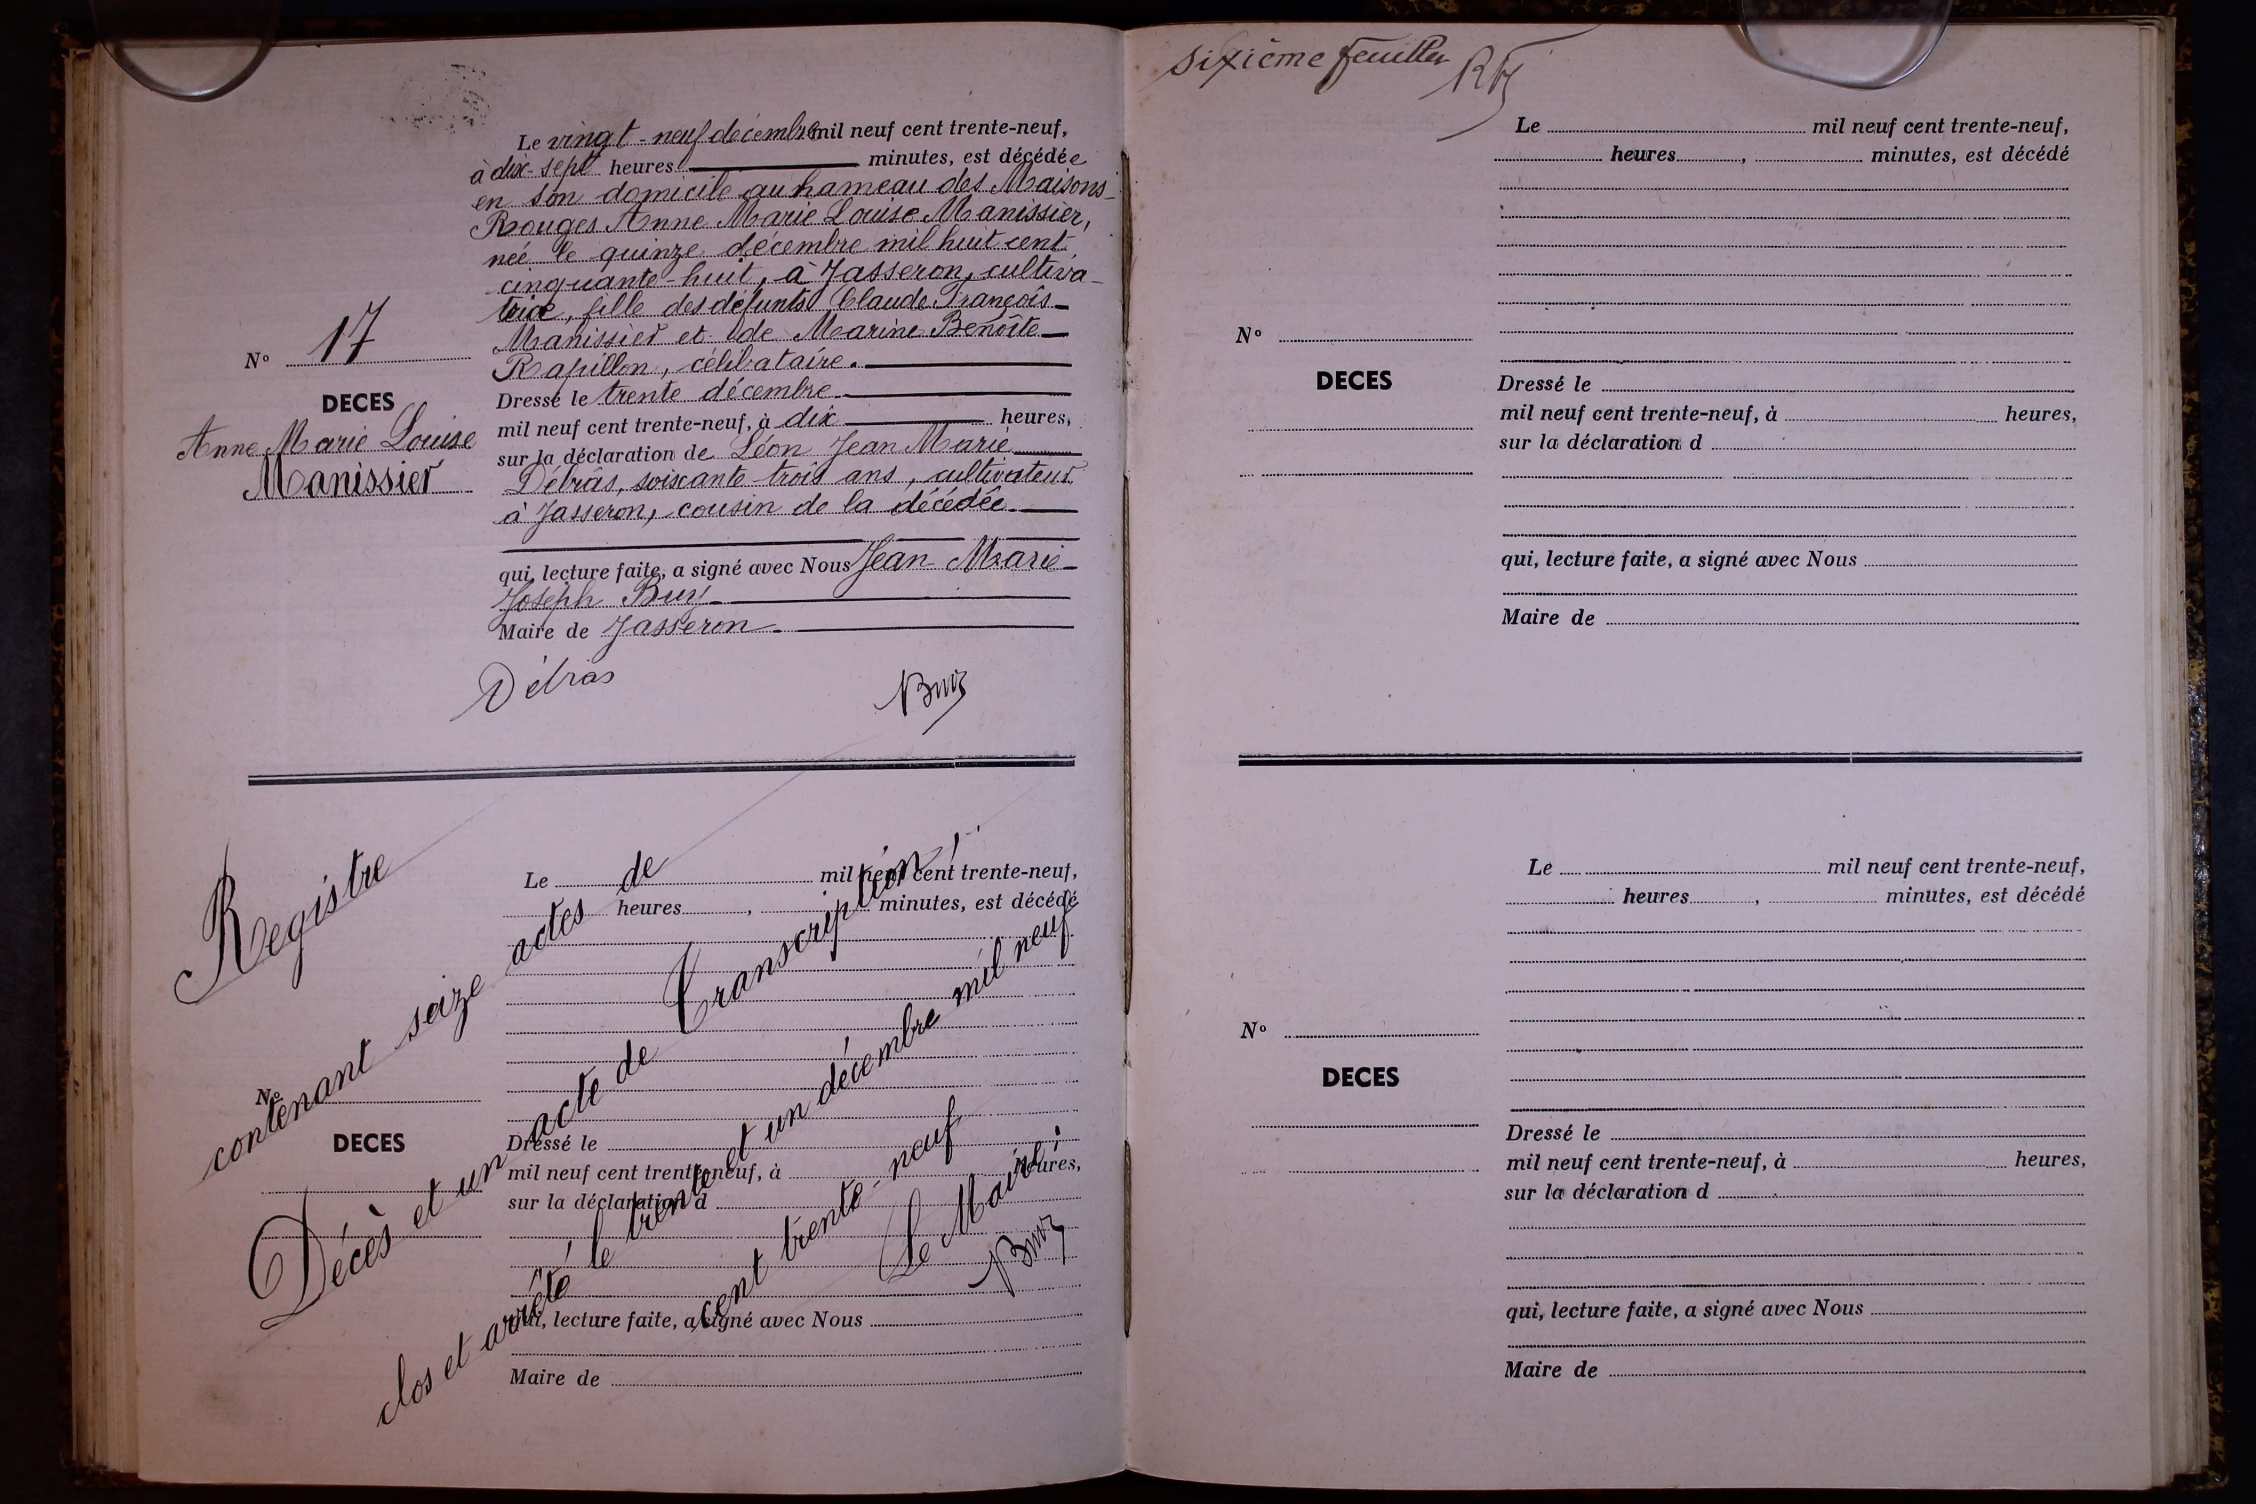 Le vingt-neuf décembre mil neuf cent trente-neuf,
à dix-sept heures minutes, est décédée
en son domicile au hameau des Maisons-
Rouges Anne Marie Louise Manissier,
née le quinze décembre mil huit cent
cinquante-huit, à Jasseron, cultiva-
trice, fille des défunts Claude François
Manissier et de Marine Benoîte
Rapillon, célibataire.
Nº 17
DECES
Anne Marie Louise
Manissier
Dressé le trente décembre
mil neuf cent trente-neuf, à dix heures,
sur la déclaration de Léon Jean Marie
Débrás, soixante-trois ans, cultivateur
à Jasseron, cousin de la décédée.
qui, lecture faite, a signé avec Nous Jean Marie
Joseph Buy
Maire de Jasseron.
Débras
Buy
Le mil neuf cent trente-neuf,
heures , minutes, est décédé
Nº
DECES
Dressé le
mil neuf cent trente-neuf, à heures,
sur la déclaration d
qui, lecture faite, a signé avec Nous
Maire de
Registre
contenant seize actes de
Décès et un acte de Transcription,
clos et arrêté le trente et un décembre mil neuf
cent trente-neuf
Le Maire:
Buy
sixième feuillet
Le mil neuf cent trente-neuf,
heures , minutes, est décédé
Nº
DECES
Dressé le
mil neuf cent trente-neuf, à heures,
sur la déclaration d
qui, lecture faite, a signé avec Nous
Maire de
Le mil neuf cent trente-neuf,
heures , minutes, est décédé
Nº
DECES
Dressé le
mil neuf cent trente-neuf, à heures,
sur la déclaration d
qui, lecture faite, a signé avec Nous
Maire de